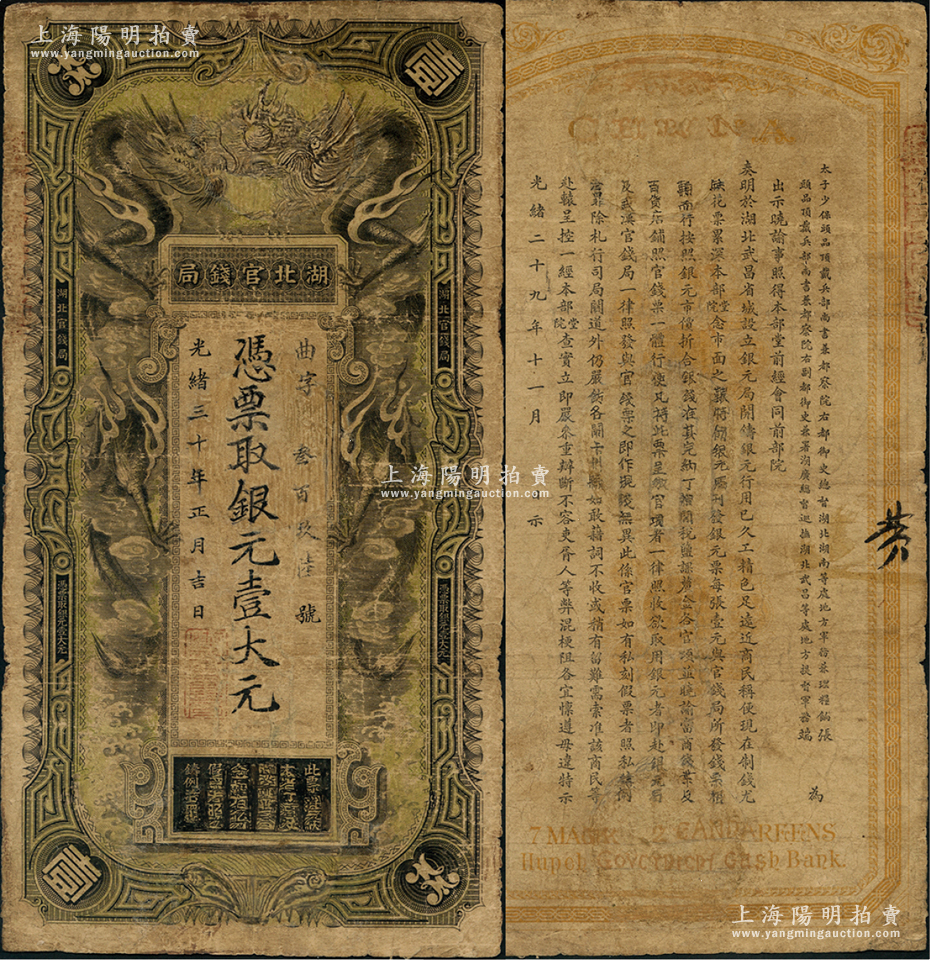 上海陽明拍賣
www.yangmingauction.com
壹
元
湖北官錢局
曲字 叁百玖陸 號
憑票取銀元壹大元
光緒三十年正月吉日
湖北官錢局
湖北官錢局
憑票取銀元壹大元
憑票取銀元壹大元
壹
元
上海陽明拍賣
www.yangmingauction.com
CHINA
太子少保頭品頂戴兵部尚書兼都察院右都御史總督湖北湖南等處地方軍務兼理糧餉張
頭品頂戴兵部尚書兼都察院右副都御史兼署湖廣總督巡撫湖北武昌等處地方提督軍務端
為
出示曉諭事照得本部堂前經會同前部院
奏明於湖北武昌省城設立銀元局開鑄銀元行用已久工精色足遠近商民稱便現在制錢尤
缺花票累深本部堂院念市面之艱將飭銀元局刊發銀元票每張壹元與官錢局所發錢票相
輔而行按照銀元市價折合銀錢准其完納丁漕關稅鹽課釐金各官項並曉諭富商錢業及
百貨店鋪照官錢票一體行使凡持此票呈繳官項者一律照收欲取用銀元者即赴銀元局
及武漢官錢局一律照發與官錢票之即作現錢無異此係官票如有私刻假票者照私鑄例
治罪除札行司局關道外仍嚴飭各關卡州縣如敢藉詞不收或稍有留難需索准該商民等
赴轅呈控一經本部堂院查實立即嚴參重辦斷不容吏胥人等弊混梗阻各宜懍遵毋違特示
光緒二十九年十一月 示
7 MACE 2 CANDAREENS
Hupeh Government Cash Bank.
上海陽明拍賣
www.yangmingauction.com